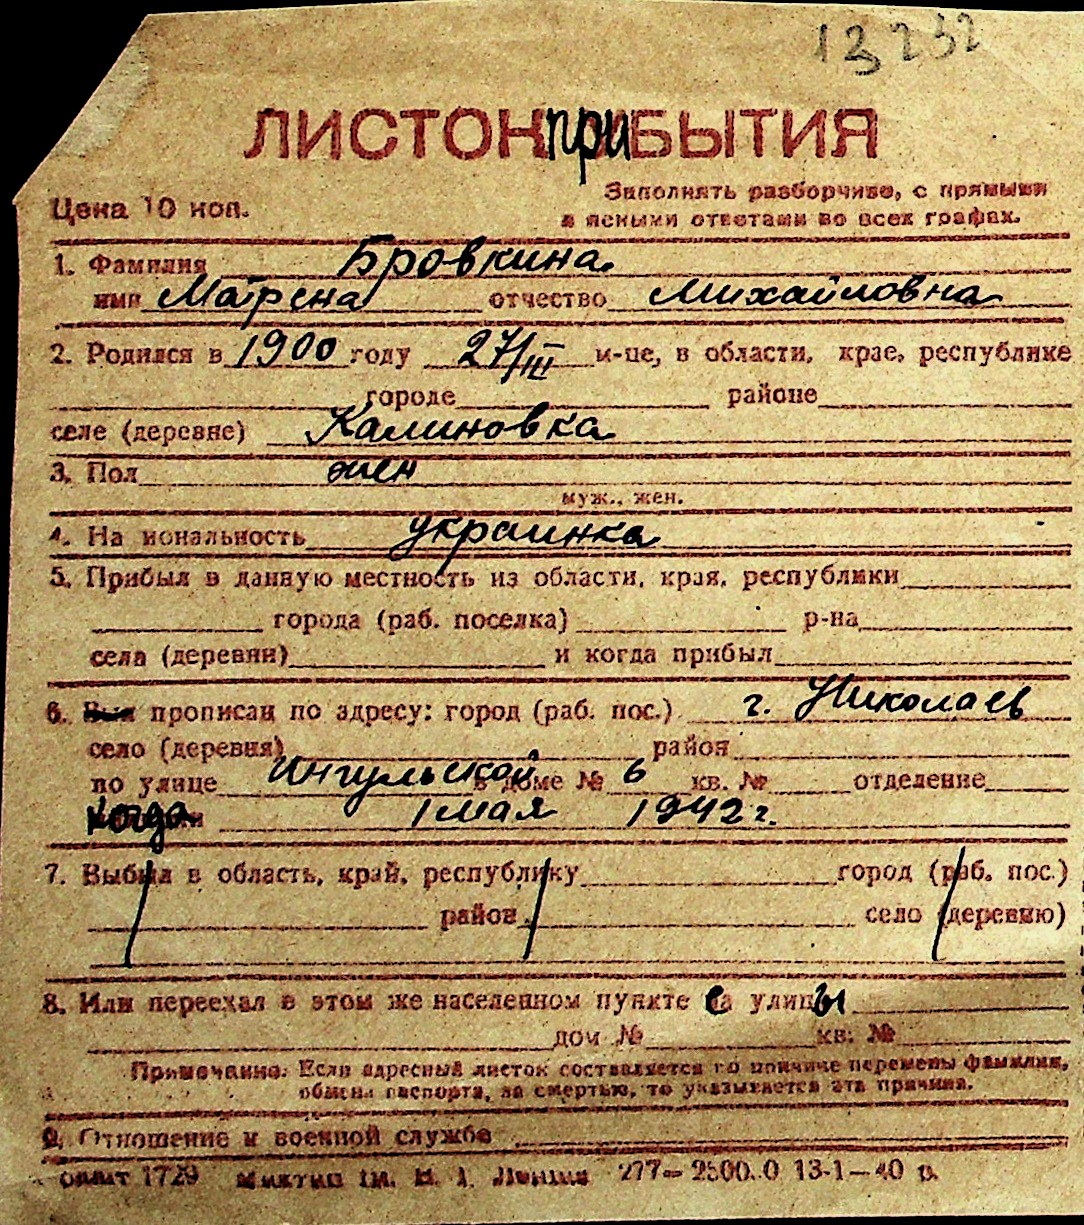 13232
ЛИСТОК ПРИБЫТИЯ
Цена 10 коп.
Заполнять разборчиво, с прямыми
и ясными ответами во всех графах.
1. Фамилия Бровкина
имя Матрена отчество Михайловна
2. Родился в 1900 году 27/III м-це, в области, крае, республике
городе районе
селе (деревне) Калиновка
3. Пол жен
муж., жен.
4. На иональность украинка
5. Прибыл в данную местность из области, края, республики
города (раб. поселка) р-на
села (деревни) и когда прибыл
6. прописан по адресу: город (раб. пос.) г. Николаев
село (деревня) район
по улице Ингульской в доме № 6 кв. № отделение
когда 1 мая 1942 г.
7. Выбыл в область, край, республику город (раб. пос.)
район село (деревню)
8. Или переехал в этом же населенном пункте с улицы
дом № кв. №
Примечание. Если адресный листок составляется по причине перемены фамилии,
обмена паспорта, за смертью, то указывается эта причина.
9. Отношение к военной службе
1729 им. Ленина 277— 13-1—40 р.